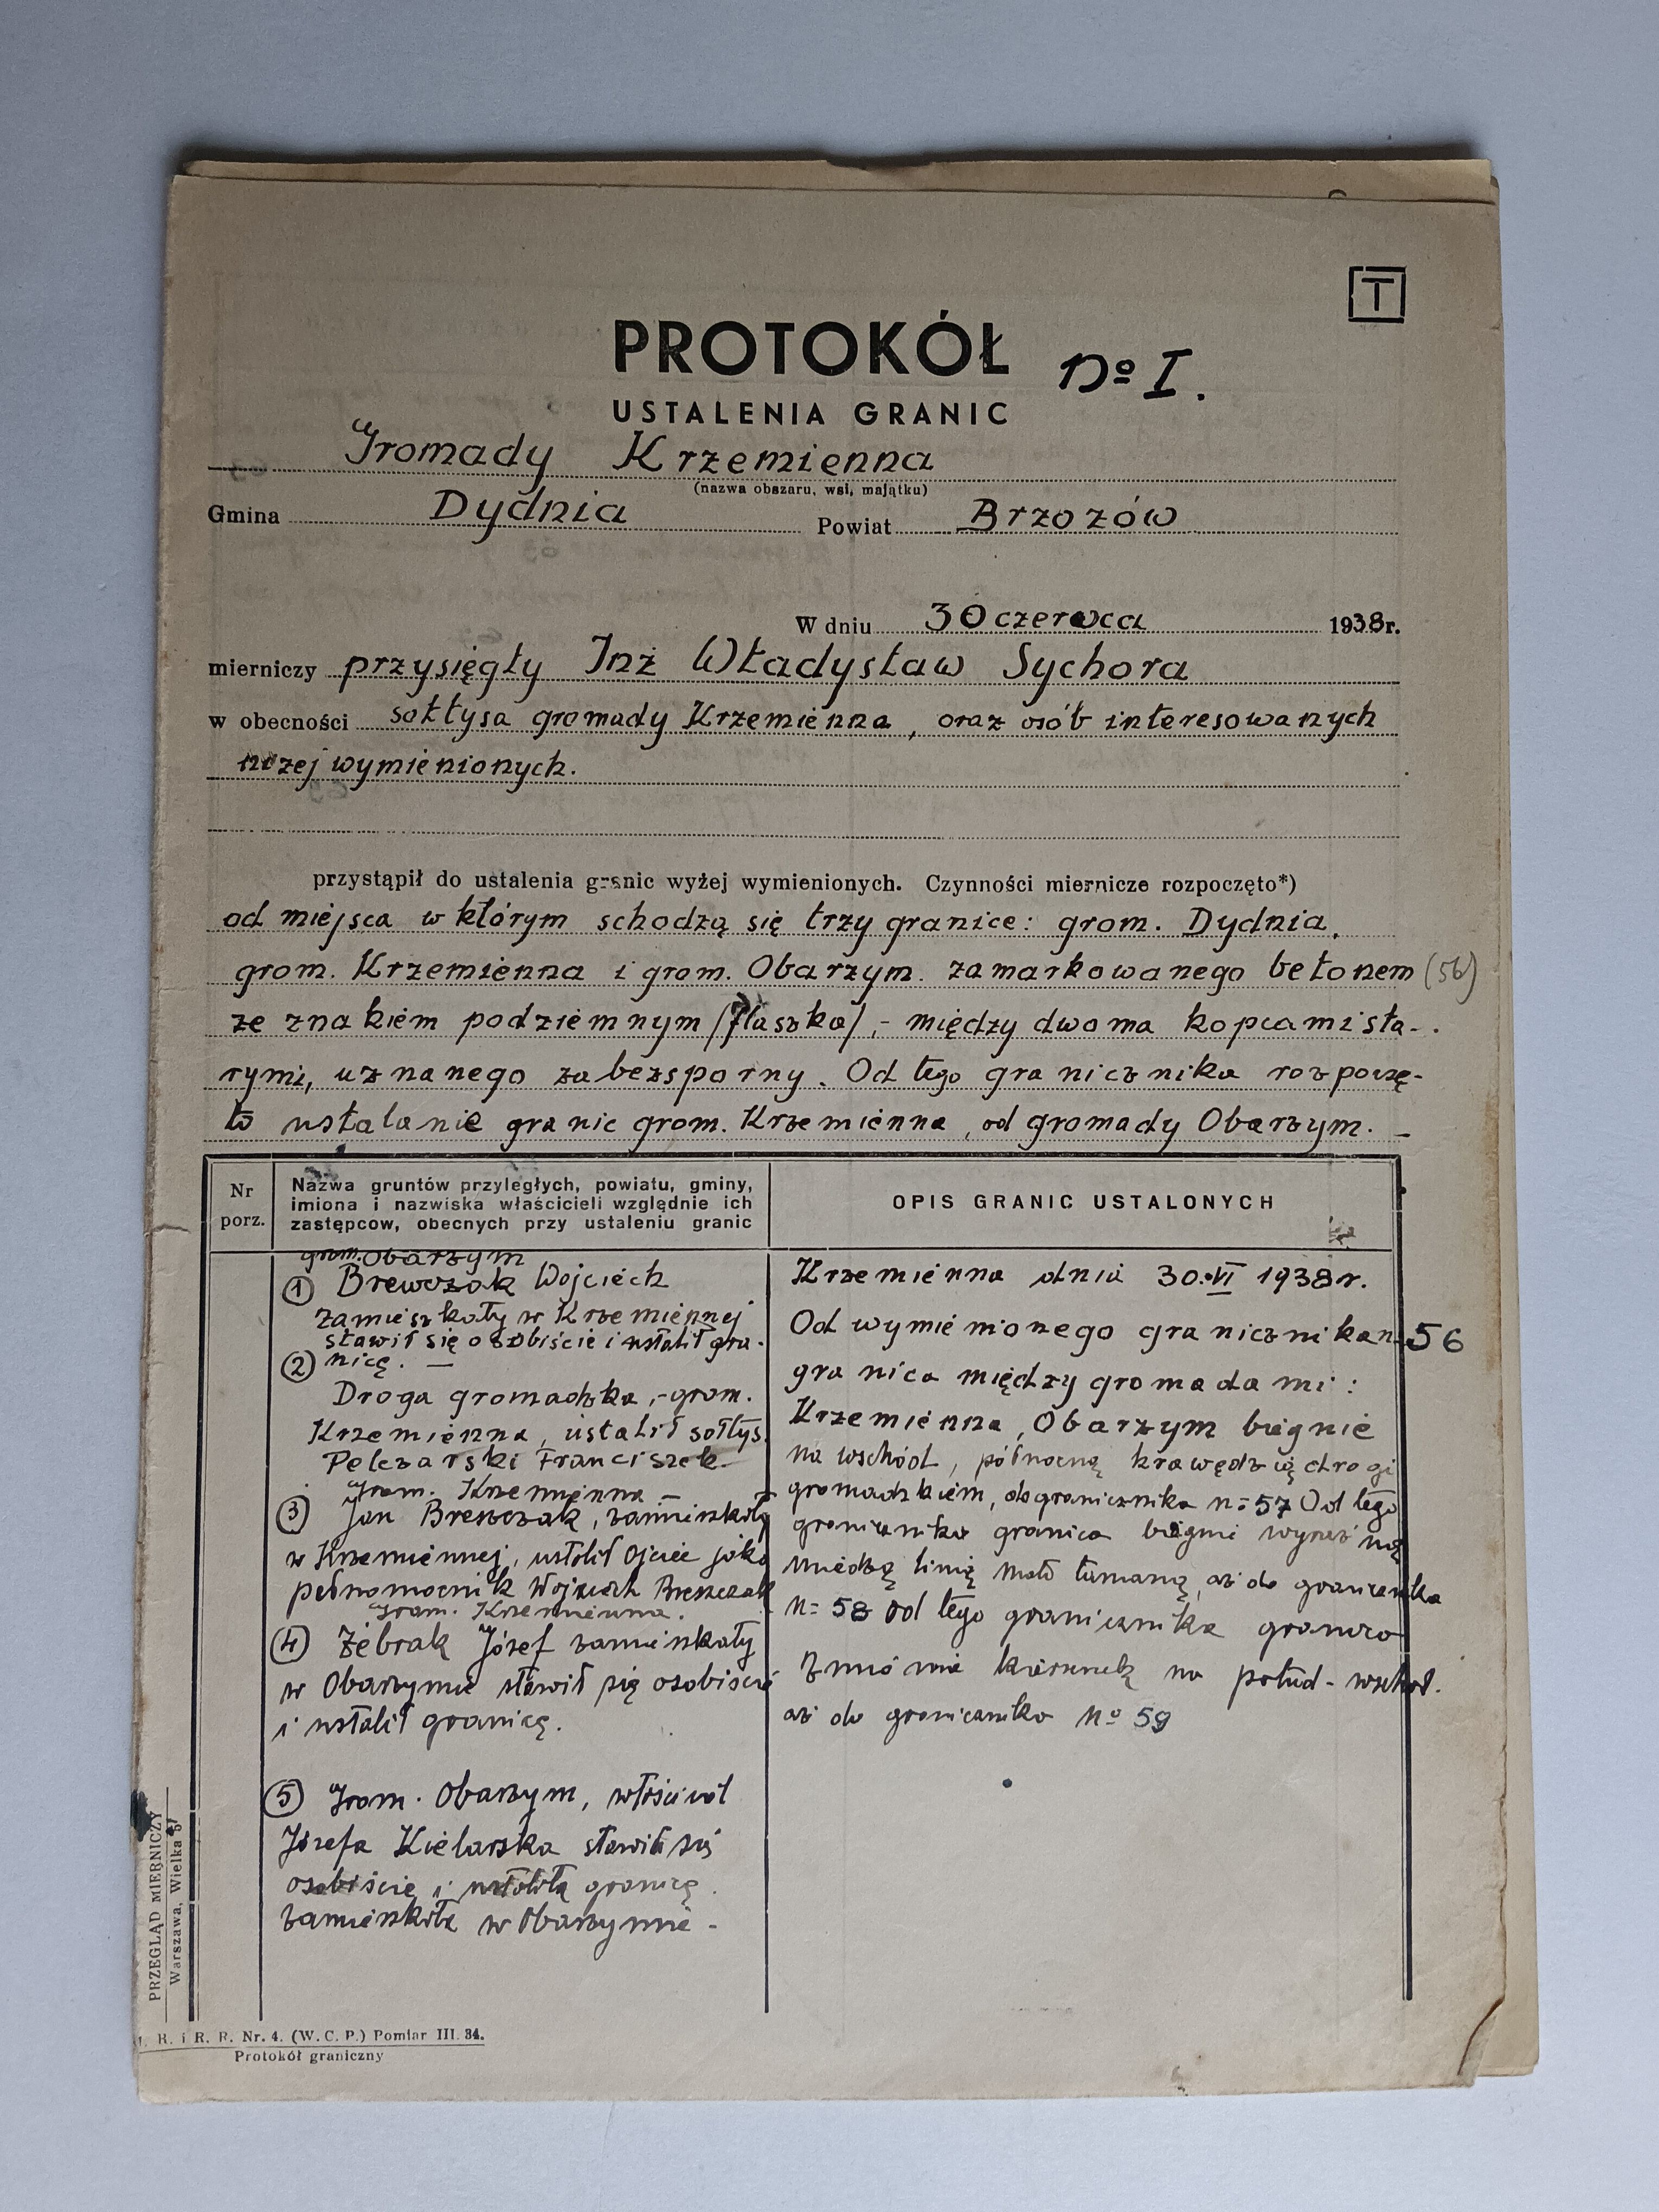 T
PROTOKÓŁ No I.
USTALENIA GRANIC
Gromady Krzemienna
(nazwa obszaru, wsi, majątku)
Gmina Dydnia Powiat Brzozów
W dniu 30 czerwca 1938r.
mierniczy przysięgły Inż Władysław Sychora
w obecności sołtysa gromady Krzemienna, oraz osób interesowanych
niżej wymienionych.
przystąpił do ustalenia granic wyżej wymienionych. Czynności miernicze rozpoczęto*)
od miejsca w którym schodzą się trzy granice: grom. Dydnia,
grom. Krzemienna i grom. Obarzym. zamarkowanego betonem (56)
ze znakiem podziemnym /flaszka/, - między dwoma kopcami sta-
rymi, uznanego za bezsporny. Od tego granicznika rozpoczę-
to ustalanie granic grom. Krzemienna, od gromady Obarzym. -
Nr porz.
Nazwa gruntów przyległych, powiatu, gminy,
imiona i nazwiska właścicieli względnie ich
zastępcow, obecnych przy ustaleniu granic
OPIS GRANIC USTALONYCH
grom. Obarzym
① Brewczak Wojciech
zamieszkały w Krzemiennej
stawił się osobiście i ustalił gra-
② nicę. —
Droga gromadzka, - grom.
Krzemienna, ustalił sołtys.
Pelczarski Franciszek
grom. Krzemienna —
③ Jan Breszczak, zamieszkały
w Krzemiennej, ustalił Ojciec jako
pełnomocnik Wojciech Breszczak
grom. Krzemienna.
④ Żebrak Józef zamieszkały
w Obarzymie stawił się osobiście
i ustalił granicę.
⑤ Grom. Obarzym, właścicel
Józefa Kielarska stawiła się
osobiście i ustaliła granicę.
zamieszkała w Obarzymie -
Krzemienna dnia 30.VI 1938r.
Od wymienionego granicznika n. 56
granica między gromadami:
Krzemienna, Obarzym biegnie
na wschód, północną krawędzią drogi
gromadzkiem, do granicznika n= 57 Od tego
granicznika granica biegnie wyraźną
miedzą linią mało łamaną, aż do granicznika
n= 58 od tego granicznika granica
zmienia kierunek na połud - wschod.
aż do granicznika No 59
PRZEGLĄD MIERNICZY
Warszawa, Wielka
R. i R. R. Nr. 4. (W. C. P.) Pomiar III. 34.
Protokół graniczny